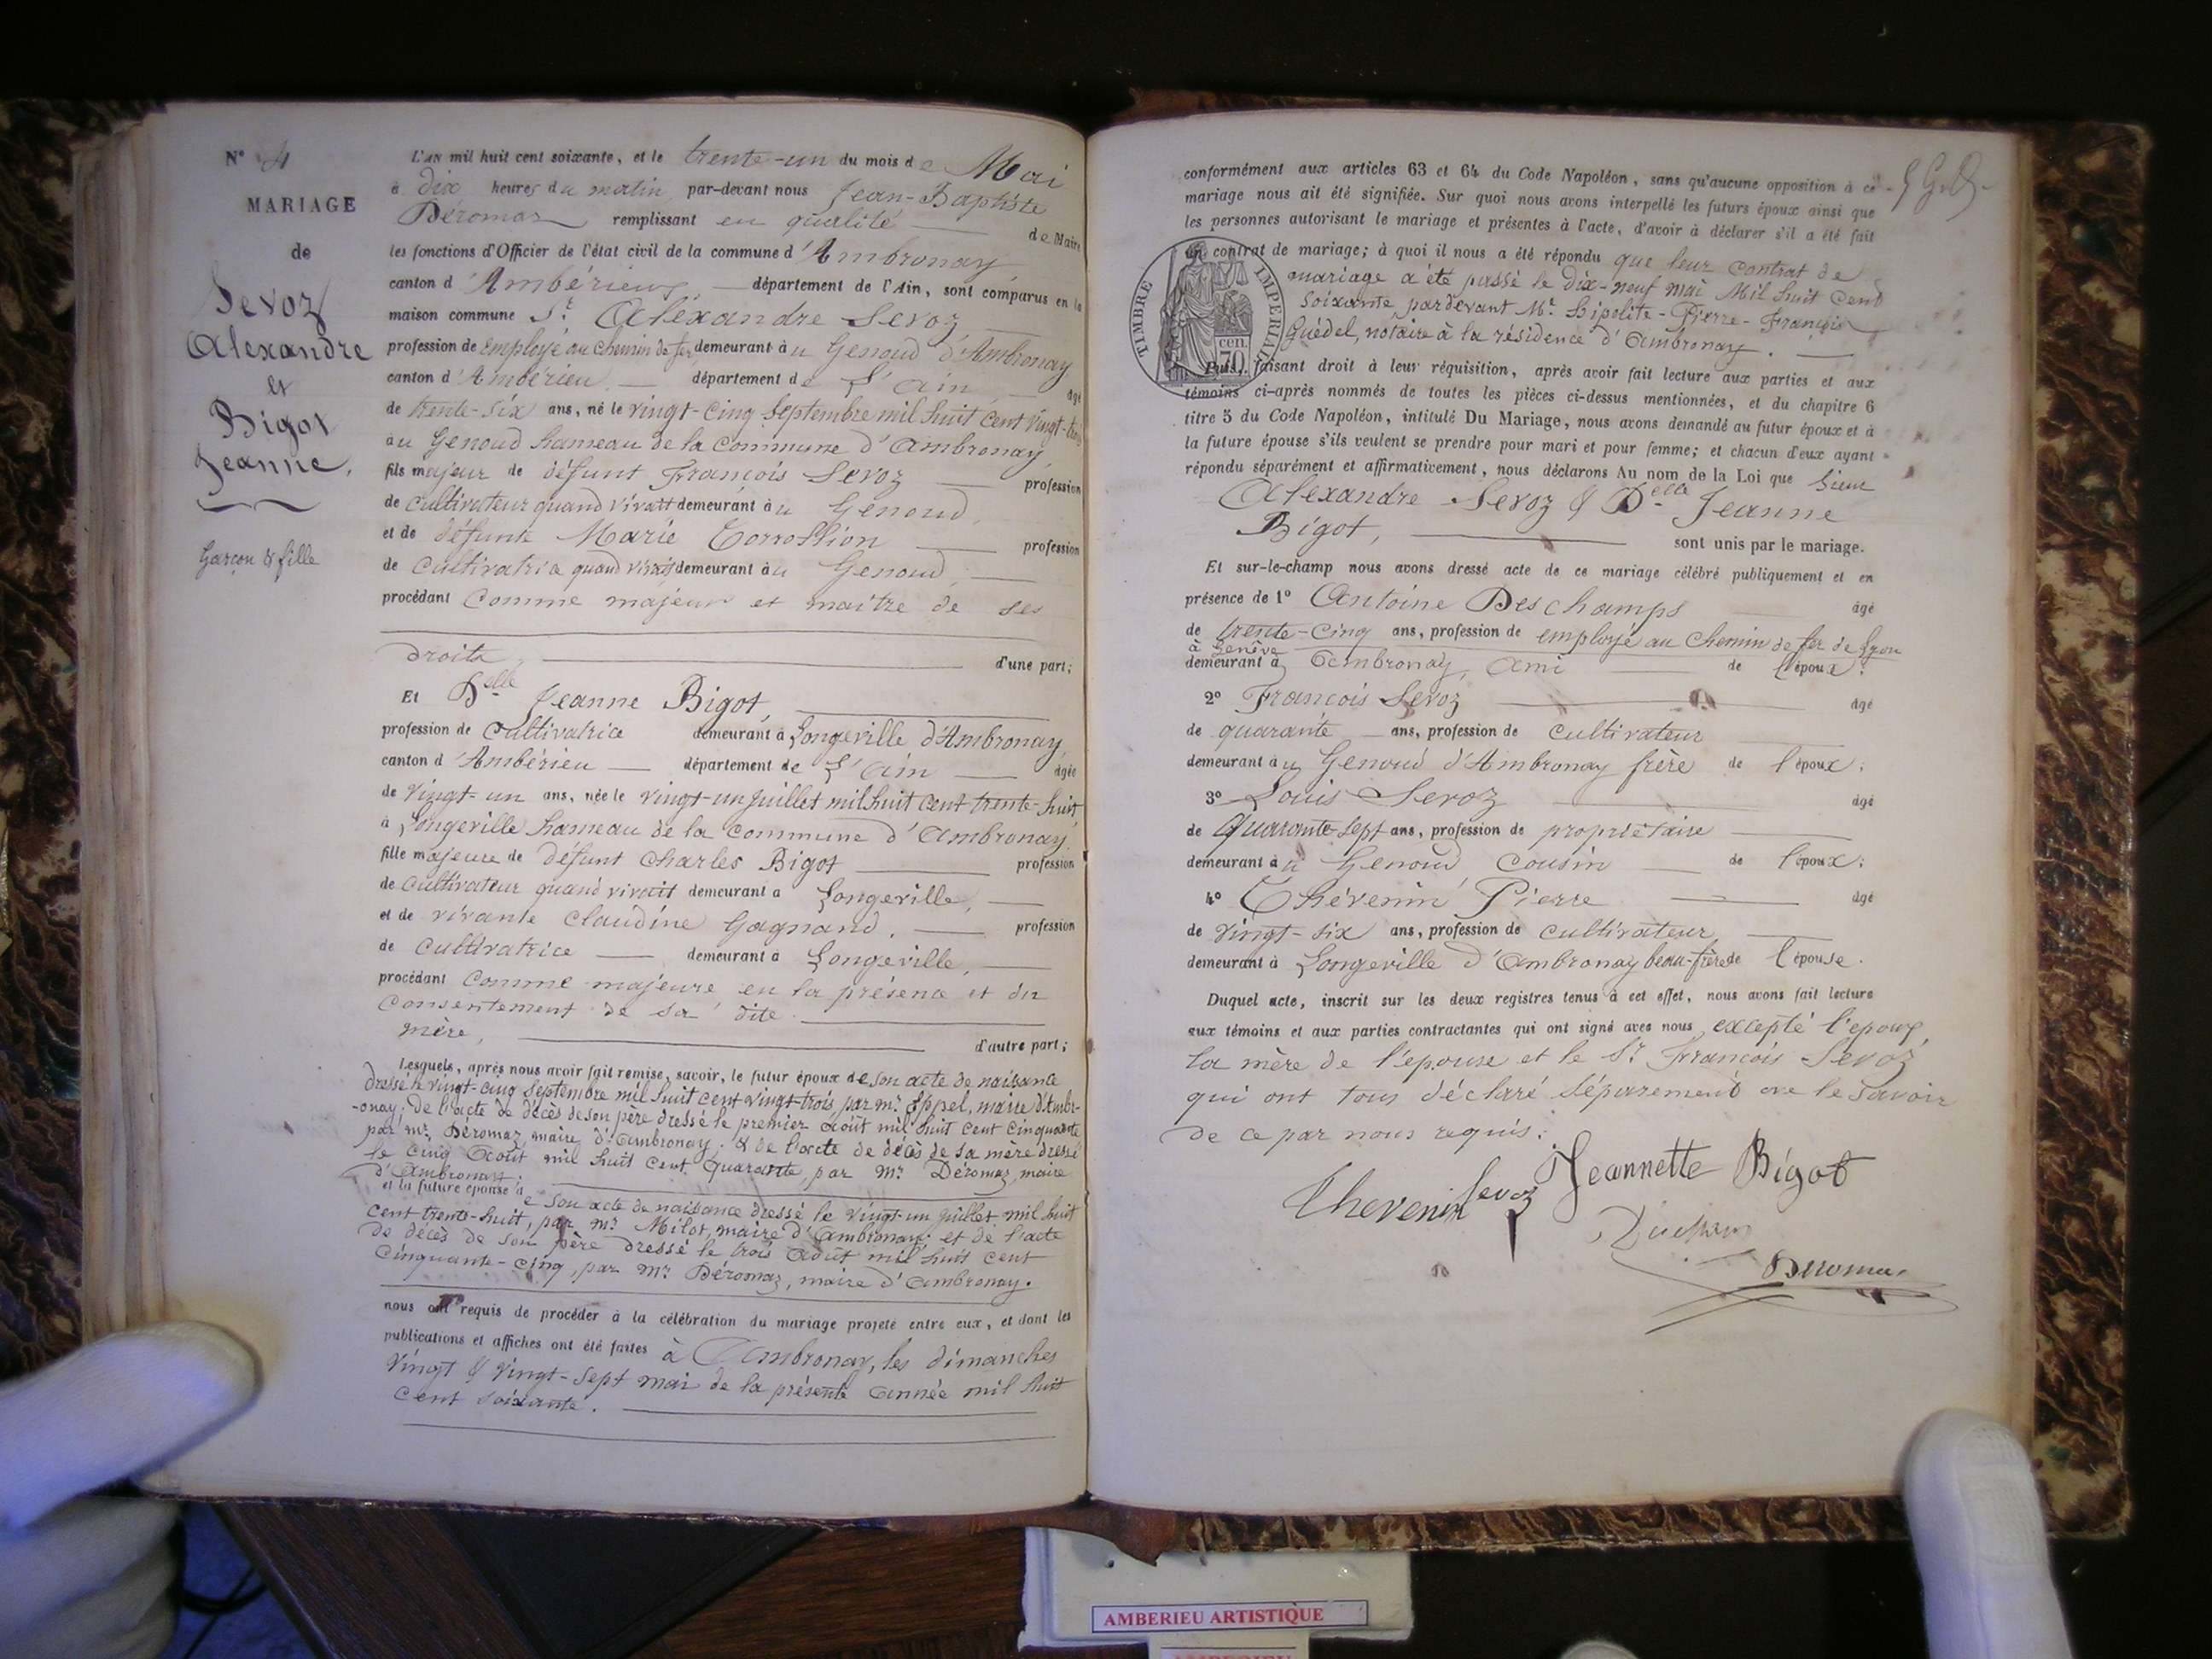 N° 4
MARIAGE
de
Sevoz
Alexandre
et
Bigot
Jeanne,
Garçon & fille
L'AN mil huit cent soixante, et le trente-un du mois de Mai
à dix heures du matin par-devant nous Jean-Baptiste
Déromas remplissant en qualité de Maire
les fonctions d'Officier de l'état civil de la commune d'Ambronay
canton d'Ambérieux, département de l'Ain, sont comparus en la
maison commune Sr. Alexandre Sevoz
profession de Employé au chemin de fer demeurant à u Genoud d'Ambronay
canton d'Ambérieu département de L'ain âgé
de trente-six ans, né le vingt-cinq Septembre mil huit cent vingt-trois
au Genoud hameau de la commune d'Ambronay,
fils majeur de défunt François Sevoz profession
de cultivateur quand vivait demeurant à u Genoud,
et de défunte Marie profession
de cultivatrice quand vivait demeurant à u Genoud,
procédant comme majeur et maître de ses
droits, d'une part;
Et Delle Jeanne Bigot,
profession de cultivatrice demeurant à Longeville d'Ambronay,
canton d'Ambérieu département de L'ain âgée
de vingt-un ans, née le vingt-un juillet mil huit cent trente-huit,
à Longeville hameau de la commune d'Ambronay.
fille majeure de défunt Charles Bigot profession
de cultivateur quand vivait demeurant à Longeville,
et de vivante Claudine Gagnand, profession
de cultivatrice demeurant à Longeville,
procédant comme majeure en la présence et du
consentement de sa dite
mère, d'autre part;
Lesquels, après nous avoir fait remise, savoir, le futur époux de son acte de naissance
dressé le vingt-cinq Septembre mil huit cent vingt-trois, par mr. Eppel, maire d'Ambr-
-onay; de l'acte de décès de son père dressé le premier août mil huit cent cinquante
par mr. Déromaz, maire d'Ambronay; & de l'acte de décès de sa mère dressé
le cinq Août mil huit cent quarante, par mr. Déromaz, maire
d'Ambronay;
et la future épouse de son acte de naissance dressé le vingt-un juillet mil huit
cent trente-huit, par mr. Milot, maire d'Ambronay; et de l'acte
de décès de son père dressé le trois août mil huit cent
cinquante-cinq, par mr. Déromaz, maire d'Ambronay.
nous ont requis de procéder à la célébration du mariage projeté entre eux, et dont les
publications et affiches ont été faites à Ambronay, les dimanches
vingt & vingt-sept mai de la présente année mil huit
cent soixante.
conformément aux articles 63 et 64 du Code Napoléon, sans qu'aucune opposition à ce
mariage nous ait été signifiée. Sur quoi nous avons interpellé les futurs époux ainsi que
les personnes autorisant le mariage et présentes à l'acte, d'avoir à déclarer s'il a été fait
un contrat de mariage; à quoi il nous a été répondu que leur contrat de
mariage a été passé le dix-neuf mai Mil huit cent
soixante pardevant Me. Hipolite-Pierre-François
Guédel, notaire à la résidence d'Ambronay.
TIMBRE IMPERIAL
70 cen.
Puis, faisant droit à leur réquisition, après avoir fait lecture aux parties et aux
témoins ci-après nommés de toutes les pièces ci-dessus mentionnées, et du chapitre 6
titre 5 du Code Napoléon, intitulé Du Mariage, nous avons demandé au futur époux et à
la future épouse s'ils veulent se prendre pour mari et pour femme; et chacun d'eux ayant
répondu séparément et affirmativement, nous déclarons Au nom de la Loi que Sieur
Alexandre Sevoz & Delle Jeanne
Bigot, sont unis par le mariage.
Et sur-le-champ nous avons dressé acte de ce mariage célébré publiquement et en
présence de 1° Antoine Deschamps âgé
de trente-cinq ans, profession de employé au Chemin de fer de Lyon
à Genève
demeurant à Ambronay, Ami de l'époux.
2° François Sevoz âgé
de quarante ans, profession de cultivateur
demeurant à u Genoud d'Ambronay frère de l'époux;
3° Louis Sevoz âgé
de Quarante-sept ans, profession de propriétaire
demeurant à u Genoud, cousin de l'époux;
4° Thévenin Pierre âgé
de vingt-six ans, profession de cultivateur
demeurant à Longeville d'Ambronay beau-frère de l'épouse.
Duquel acte, inscrit sur les deux registres tenus à cet effet, nous avons fait lecture
aux témoins et aux parties contractantes qui ont signé avec nous, excepté l'époux,
la mère de l'épouse et le Sr. François Sevoz,
qui ont tous déclaré séparément ne le savoir
de ce par nous requis.
Thevenin Sevoz Jeannette Bigot
Deromas
AMBERIEU ARTISTIQUE
AMBERIEU